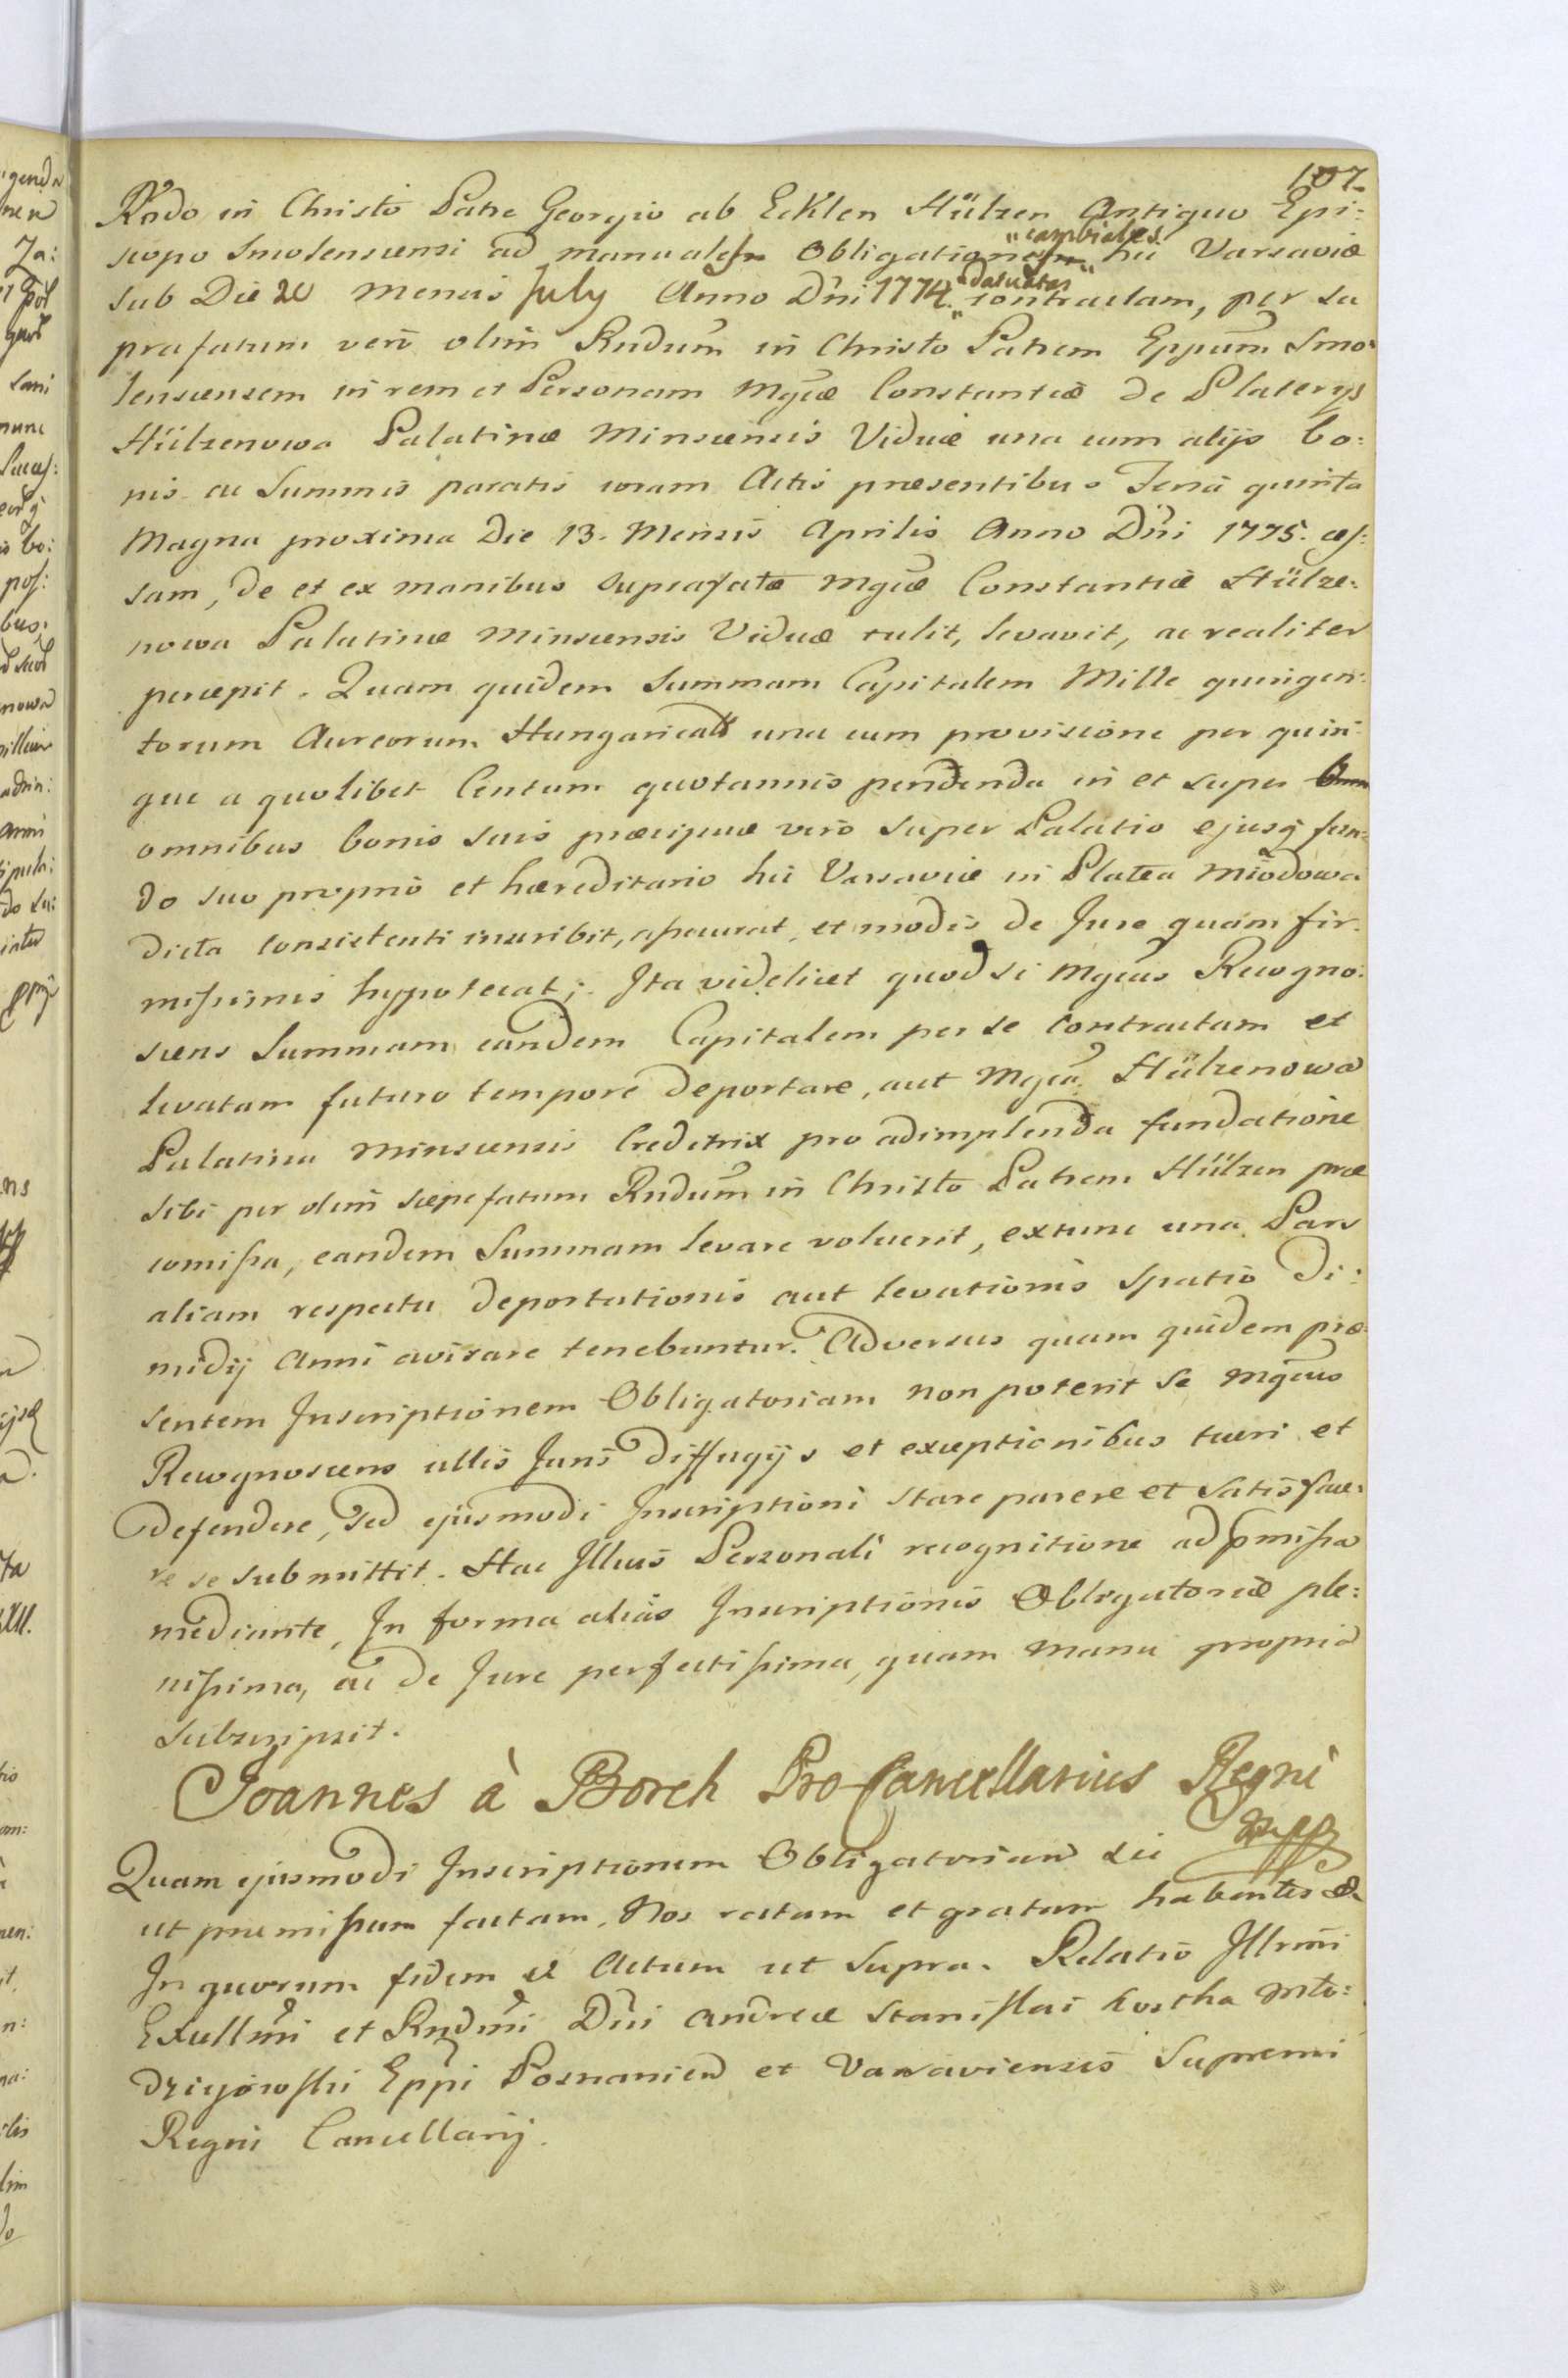 107.
Rndo in Christo Patre Georgio ab Ecklen Hülzen Antiquo Epi:
scopo Smolenscensi ad manuales Obligationes "cambiales" hic Varsaviæ
sub Die 20 Mensis July Anno Dni 1774. "datuatas" contractam, per su
prafatum vero olim Rndum in Christo Patrem Eppum Smo:
lenscensem in rem et Personam Mgcæ Constantiæ de Platerys
Hülzenowa Palatinæ Minscensis Viduæ una cum alijs bo:
nis ac Summis paratis coram Actis præsentibus Feria quinta
Magna proxima Die 13. Mensis Aprilis Anno Dni 1775. ces:
sam, de et ex manibus suprafatæ Mgcæ Constantiæ Hülze:
nowa Palatinæ Minscensis Viduæ tulit, levavit, ac realiter
percepit. Quam quidem Summam Capitalem Mille quingen:
torum Aureorum Hungarical una cum provisione per quin:
que a quolibet Centum quotannis pendenda in et super
omnibus bonis suis præcipue vero super Palatio ejusq fun:
do suo proprio et hæreditario hic Varsaviæ in Platea Miodowa
dicta consistenti inscribit, assecurat, et modis de Jure quam fir:
missimis hypotecat; Ita videlicet quod si Mgcus Recogno:
scens Summam eandem Capitalem per se contractam et
levatam futuro tempore deportare, aut Mgca Hülzenowa
Palatina Minscensis Creditrix pro adimplenda fundatione
sibi per olim sæpefatum Rndum in Christo Patrem Hülzen præ
comissa, eandem Summam levare voluerit, extunc una Pars
aliam respectu deportationis aut levationis spatio di:
midij Anni avisare tenebuntur. Adversus quam quidem præ:
sentem Inscriptionem Obligatoriam non poterit se Mgcus
Recognoscens ullis Juris diffugijs et exceptionibus tueri et
defendere, sed ejusmodi Inscriptioni stare parere et satisface:
re se submittit. Hac Illius Personali recognitione ad pmissa
mediante, In forma alias Inscriptionis Obligatoriæ ple:
nissima, ac de Jure perfectissima, quam manu propria
subscripsit.
Joannes à Borch Pro Cancellarius Regni
Quam ejusmodi Inscriptionem Obligatoriam sic
ut præmissum factam, Nos ratam et gratam habentes &
In quorum fidem & Actum ut supra. Relatio Illrmi
Excellmi et Rndmi Dni Andreæ Stanislai Kostka Mło:
dzieiowski Eppi Posnanien et Varsaviensis Supremi
Regni Cancellarij.